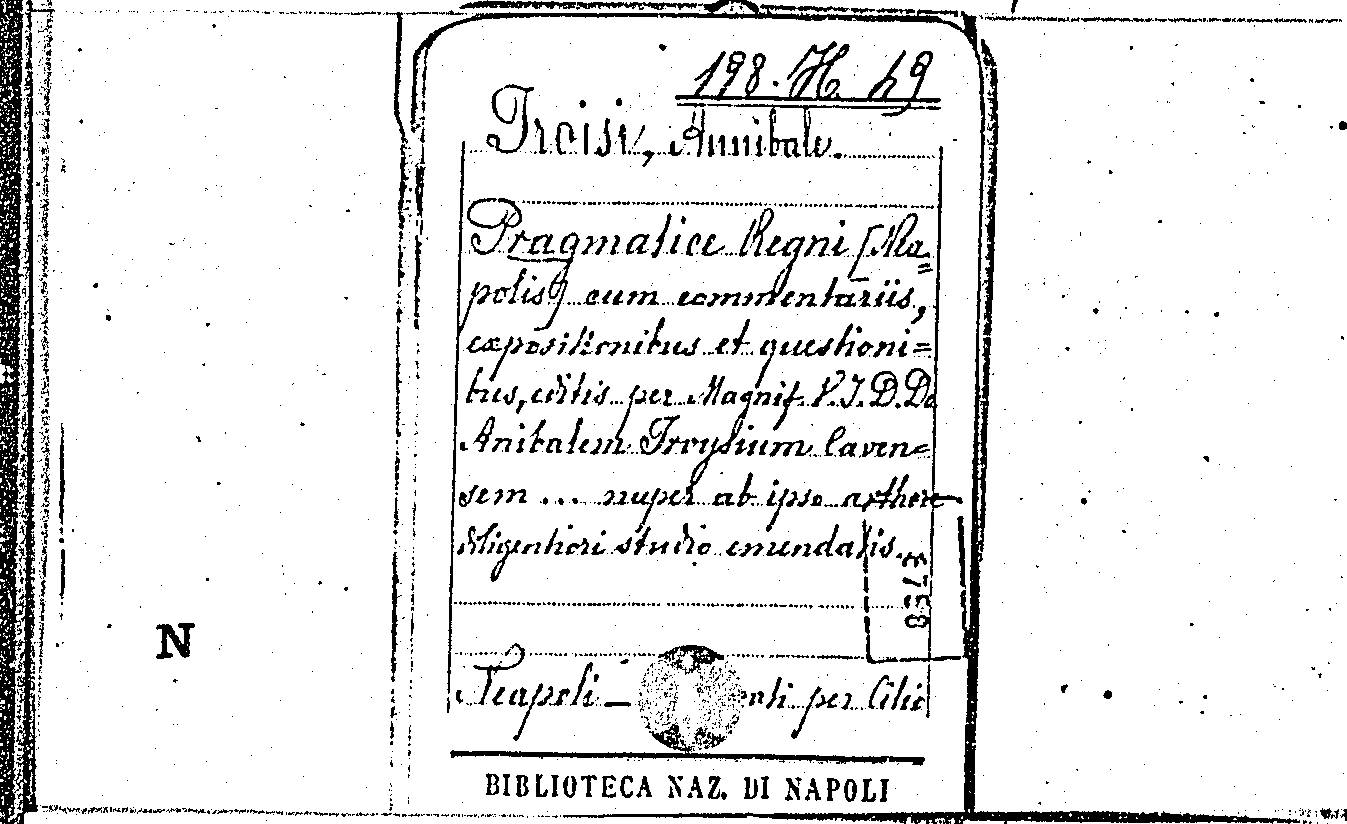 198. H 49
Troisi, Annibale.
Pragmatice Regni [Nea=
polis] cum commentariis,
expositionibus et questioni=
bus, editis per Magnif. V.J.D.D.
Anibalem Troysium Caven=
sem ... nuper ab ipso arthore
diligentiori studio emendatis.
3758
Neapoli - per Cilio
BIBLIOTECA NAZ. DI NAPOLI
N